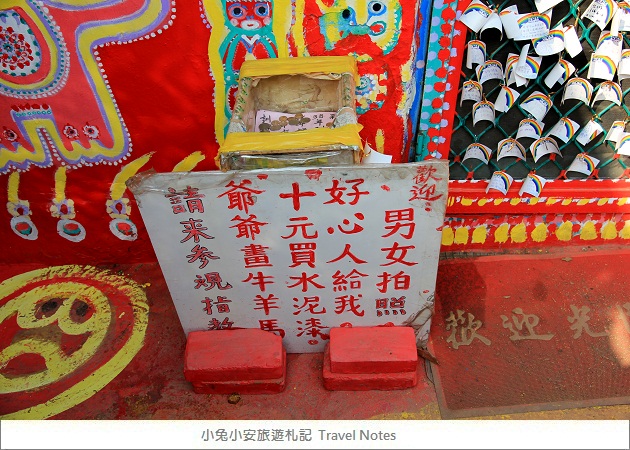 歡迎:
男女拍照
好心人給我
十元買水泥漆
爺爺畫牛羊馬
請來參覌指教
歡迎光
小兔小安旅遊札記 Travel Notes